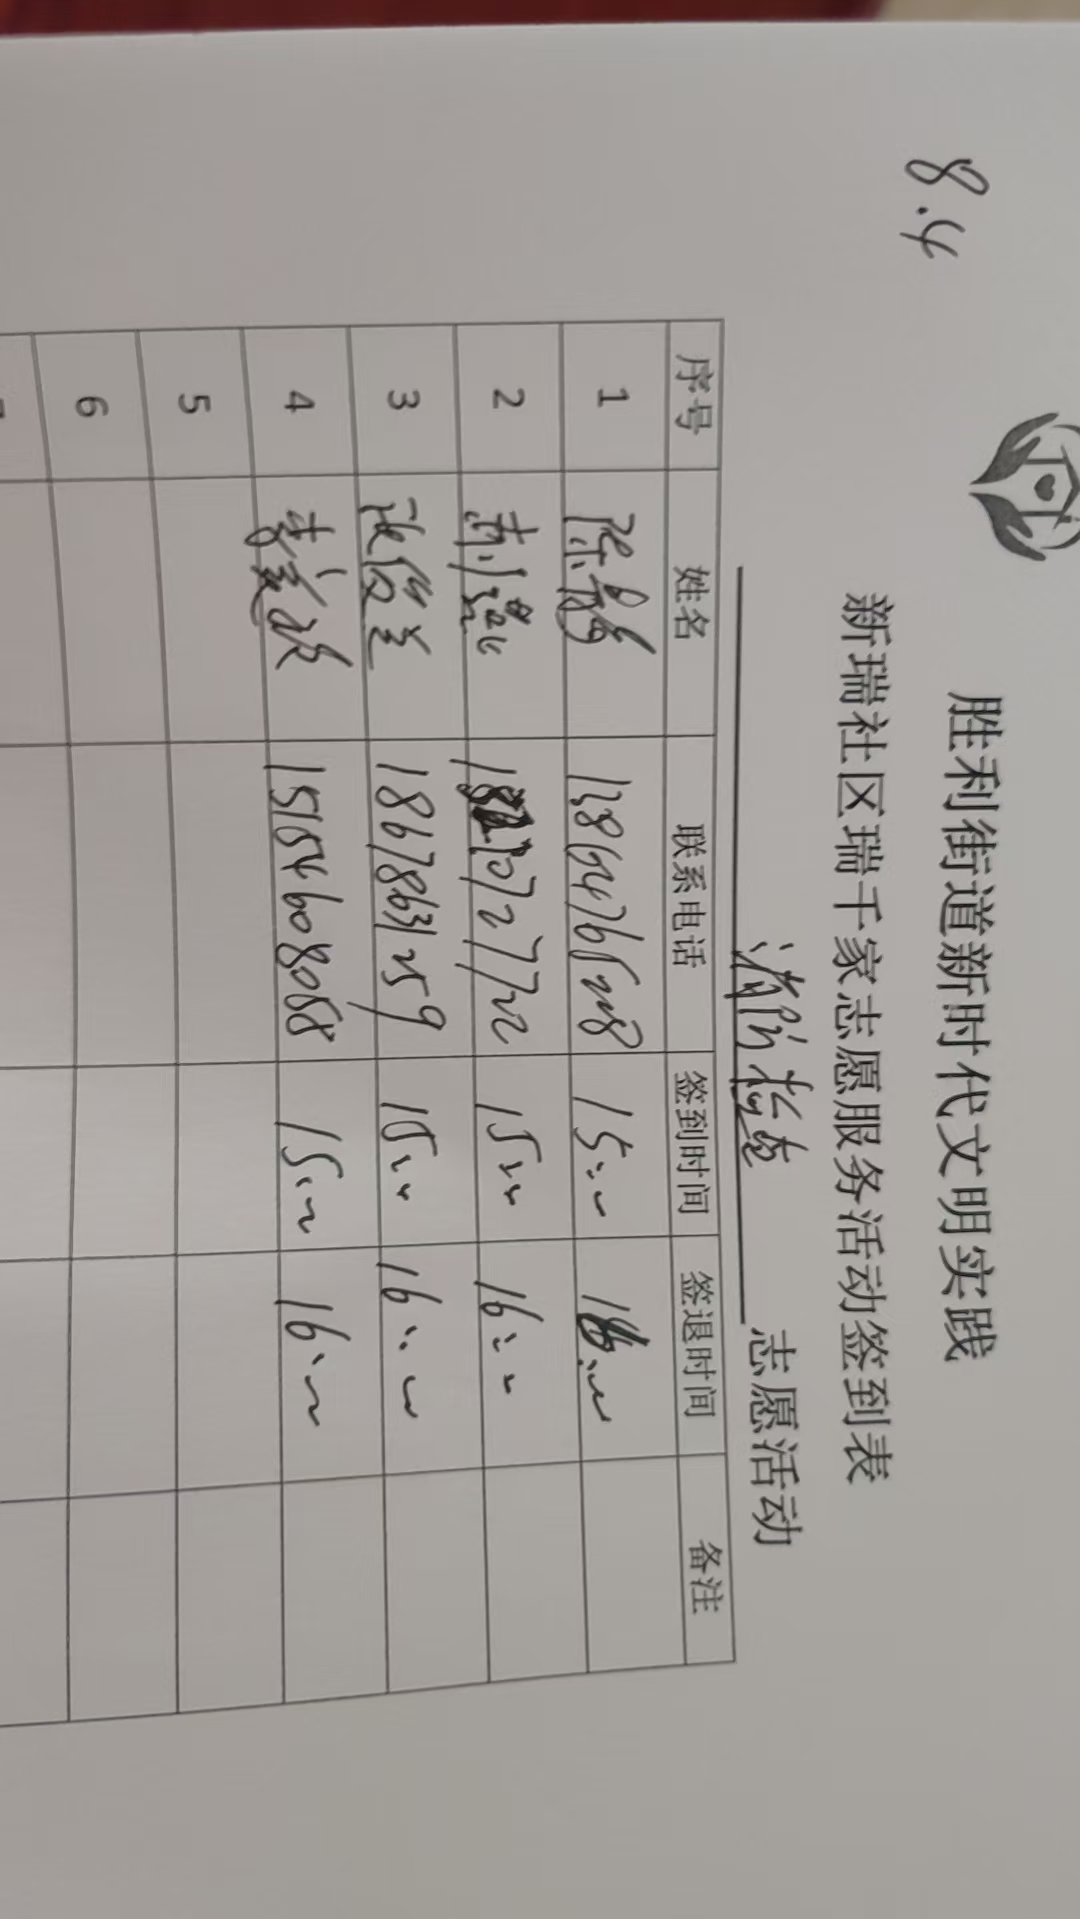 8.4
胜利街道新时代文明实践
新瑞社区瑞千家志愿服务活动签到表
消防检查 志愿活动
序号 姓名 联系电话 签到时间 签退时间 备注
1 陈 15:00 16:00
2 15:00 16:00
3 18678631259 15:00 16:00
4 李 15154608058 15:00 16:00
5
6